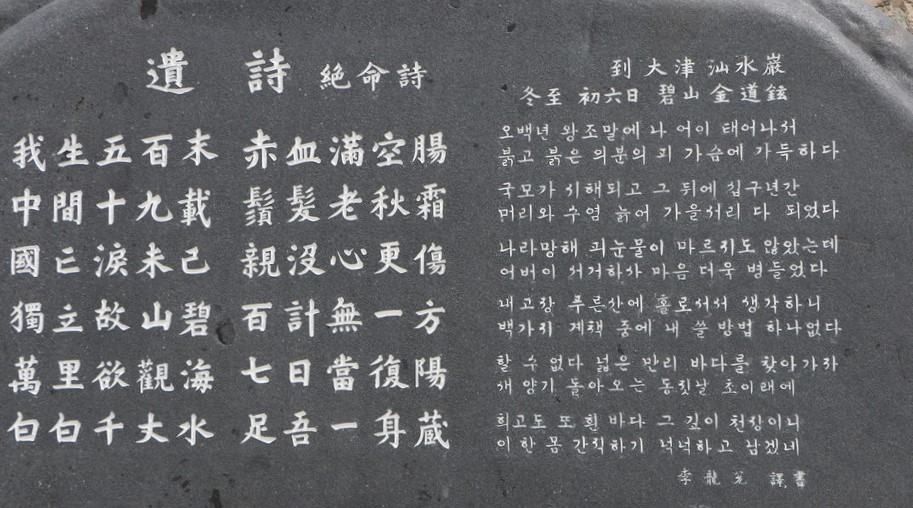 遺 詩 絶命詩
我生五百末 赤血滿空腸
中間十九載 鬚髮老秋霜
國亡淚未已 親沒心更傷
獨立故山碧 百計無一方
萬里欲觀海 七日當復陽
白白千丈水 足吾一身蔵
到 大津 汕水巖
冬至 初六日 碧山 金道鉉
오백년 왕조말에 나 어이 태어나서
붉고 붉은 의분의 피 가슴에 가득하다
국모가 시해되고 그 뒤에 십구년간
머리와 수염 늙어 가을서리 다 되었다
나라망해 피눈물이 마르지도 않았는데
어버이 서거하사 마음 더욱 병들었다
내고장 푸른산에 홀로서서 생각하니
백가지 계책 중에 내 쓸 방법 하나없다
할 수 없다 넓은 만리 바다를 찾아가자
새 양기 돌아오는 동짓날 초이래에
희고도 또 흰 바다 그 깊이 천장이니
이 한 몸 간직하기 넉넉하고 남겠네
李龍 譯書